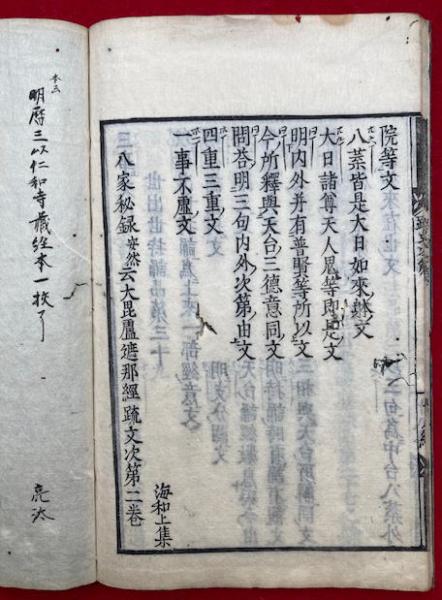 院等文
八葉皆是大日如來躰文
大日諸尊天人鬼等即是文
明内外并有普賢等所以文
今所釋與天台三德意同文
問答明三句内外次第由文
四重三重文
一事不虛文
海和上集
三八家秘録安然云大毘盧遮那經疏文次第二卷
本云
明曆三以仁和寺藏経本一挍了
亮汰